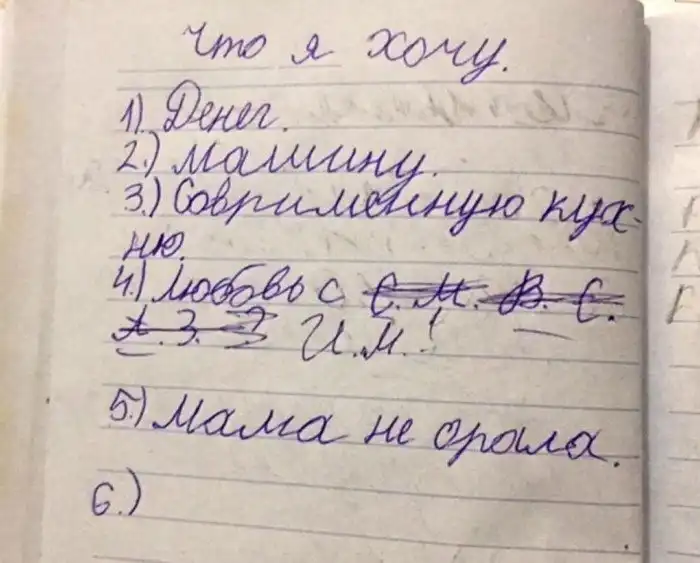 Что я хочу.
1) Денег.
2.) Машину.
3.) Соврименную кух-
ню.
4.) Любовь с Е. М. В. С.
А. З. И.М.!
5.) Мама не орала.
6.)